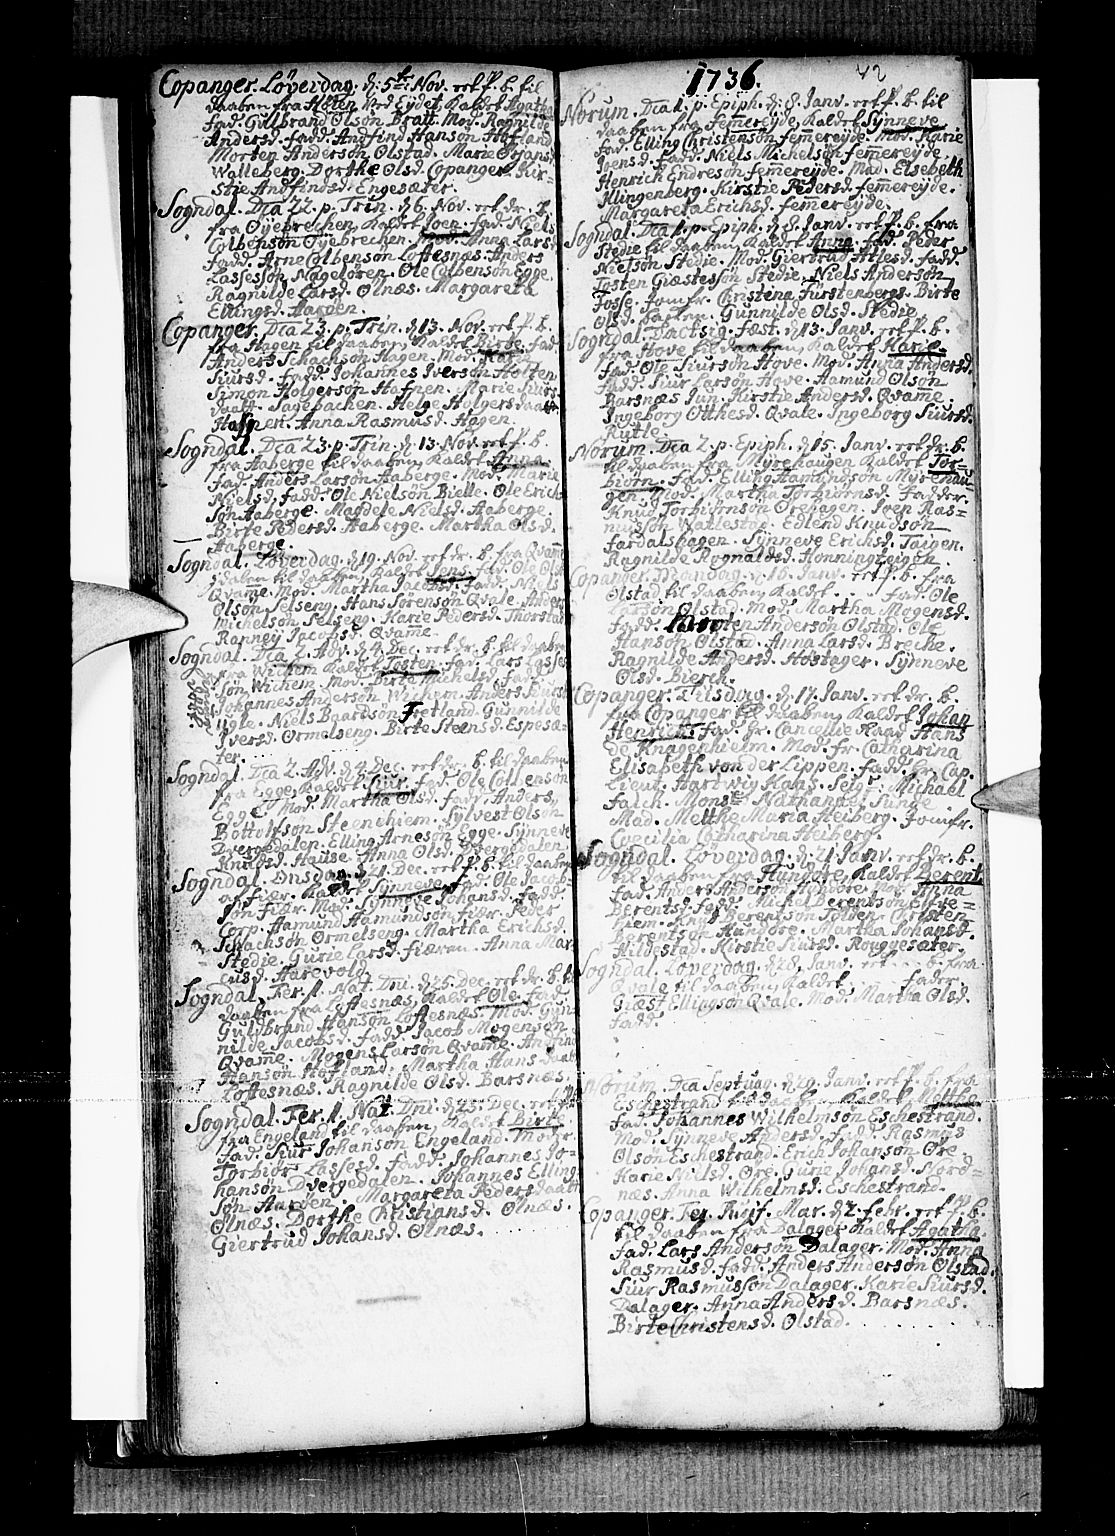 Copanger. Löverdag. d: 5te Nov. ret f. b. til
daaben fra Hoten ved Eydet Kaldet Agatha
fad. Gulbrand Olsön Bratt. Mod. Ragnilde
Andersd. fadd. Andfind Hanson Hofland
Morten Anderson Olstad. Marie Örjans
Walleberg. Dorthe Olsd. Copanger. Kir=
stie Andfindsd. Engesæter.
Sogndal. Dca 22. p. Trin. d: 6. Nov. ret dr. b.
fra Öyebrechen, Kaldet Joen. fad. Niels
Colbenson Öyebrechen. Mod. Anna Lars
fadd. Arne Colbenson Loftesnæs. Anders
Lassessön Nagelören. Ole Colbenson Egge.
Ragnilde Larsd. Ölnæs. Margareta
Ellingsd. Aaröen.
Copanger. Dca 23. p. Trin. d: 13. Nov. ret f. b.
fra Hagen til daaben, Kaldet Birte. fad.
Anders Schachsön Hagen. Mod. Karen
Siursd. fadd. Johannes Iversön Holten
Simon Holgersön Hafnen. Marie Siurs
daatt. Sagebachen. Helge Holgers daatt
Hafnen. Anna Rasmusd. Hagen.
Sogndal. Dca 23. p. Trin. d: 13. Nov. ret f. b.
fra Aaberge til daaben, Kaldet Anna.
fad. Anders Larsön Aaberge. Mod. Marie
Nielsd. fadd. Ole Nielsön Bielle. Ole Erich
sön Aaberge. Magdele Nielsd. Aaberge.
Birte Pedersd. Aaberge. Martha Olsd.
Aaberge.
Sogndal. Löverdag. d: 19. Nov. ret dr. b. fra Qvame
til daaben, Kaldet Jens. fad. Ole Ols
Qvame. Mod. Martha Jacobsd. fadd. Niels
Olson Selseng. Hans Sörensön Qvale. Anders
Michelsön Selseng. Karie Pedersd. Thorstad
Ranney Jacobsd. Qvame.
Sogndal. Dca 2. Adv. d: 4. Dec. ret dr. b. til daaben
fra Wichem Kaldet Tosten. fad. Lars Lasses
sön Wichem. Mod. Birte Michelsd. fadd.
Johannes Andersön Wichem. Anders
Niels Baardsön Fretland. Gunnilde
Iversd. Ormelseng. Birte Steensd. Espesæ=
ter.
Sogndal. Dca 2. Adv. d: 4. Dec. ret dr. b. til daaben
fra Egge, Kaldet Siur. fad. Ole Colbenson
Egge. Mod. Martha Olsd. fadd. Anders
Bottolfsön Steenchiem. Sylvest Olsön
Dvergedalen. Elling Arnesön Egge. Synneve
Knudsd. Hause. Anna Olsd. Dvergedalen.
Sogndal. Onsdag. d: 21. Dec. ret f. b. til daaben
af Fiær. Kaldet Synneve. fad. Ole Jacob=
son Fiær. Mod. Synneve Johansd. fadd.
Corp. Hamund Hamundson Fiær. Peder
Schachsön Ormelseng. Martha Erichsd.
Stedie. Gurie Larsd. Fiæren. Anna Mar
cusd. Harevold.
Sogndal. Fer. 1. Nat. Dni. d: 25. Dec. ret dr. b. til
daaben fra Loftesnæs, Kaldet Ole. fad.
Guldbrand Hanson Loftesnæs. Mod. Gun
nilde Jacobsd. fadd. Jacob Mogensön
Qvame. Mogens Larsön Qvame. Andfind
Hansön Hofland. Martha Hans daatt
Loftesnæs. Ragnilde Olsd. Barsnæs.
Sogndal. Fer. 1. Nat. Dni. d: 25. Dec. ret f. b.
fra Engeland til daaben, Kaldet Birte.
fad. Siur Johansön Engeland. Moder.
Torbiör Lassesd. fadd. Johannes Jo=
hansön Dvergedalen. Johannes Elling
sön Aaröen. Margareta Peders daatt
Ölnæs. Dorthe Christiansd. Ölnæs.
Giertrud Johansd. Ölnæs.
1736.
42
Norum. Dca 1. p. Epiph. d: 8. Janv. ret f. b. til
daaben fra femmereyde, Kaldet Synneve
fad. Elling Christensön femmereyde. Mod. Karie
Joensd. fadd. Niels Michelsön femmereyde
Henrich Endresön femereyde. Mad. Elsebeth
Klingenberg. Kirstie Pedersd. femereyde.
Margareta Erichsd. femereyde.
Sogndal. Dca 1. p. Epiph. d: 8. Janv. ret f. b. fra
Stedie til daaben, Kaldet Anna. fad. Peder
Nielsön Stedie. Mod. Giertrud Atlesd. fadd.
Tosten Giæstessön Stedie. Niels Andersön
Fosse. Jomfr. Christina Fürstenbergs. Birte
Olsd. Bachen. Gunnilde Olsd. Stedie.
Sogndal. Eactsig. fæst. d: 13. Janv. ret f. b.
fra Hove til daaben, Kaldet Karie.
fad. Ole Siursön Hove. Mod. Anna Andersd.
fadd. Siur Larsön Hove. Hamund Olsön
Barsnæs Jun. Kirstie Andersd. Qvame.
Ingeborg Otthesd. Qvale. Ingeborg Siursd.
Rutle.
Norum. Dca 2. p. Epiph. d: 15. Janv. ret dr. b.
til daaben fra Myrehaugen Kaldet Tor=
biörn. fad. Elling Hamundsön Myrehau=
gen. Mod. Martha Torbiörnsd. fadder.
Knud Torbiörnsön Orehagen. Joen Ras=
musson Wallestad. Edlend Knudsön
Fardalshagen. Synneve Erichsd. Taigen.
Ragnilde Rognaldsd. Honningteigen.
Copanger. Mandag. d: 16. Janv. ret f. b. fra
Olstad til daaben, Kaldet . . . fad. Ole
Larsön Olstad. Mod. Martha Mogensd.
fadd. Morten Andersön Olstad. Ole
Hansön Olstad. Anna Larsd. Breiche.
Ragnilde Andersd. Höstager. Synneve
Olsd. Bierch.
Copanger. Tilsdag. d: 17. Janv. ret dr. b.
fra Copanger til daaben, Kaldet Johan
Henrich. fad. Hr. Cancellie Raad Hans
de Knagenhielm. Mod. Fr. Catharina
Elisabeth von der Lippen. fadd. Hr. Cap.
Lieut. Hartwig Kaas. Seigr. Michael
Falch. Monsr. Nathanael Sunde
Mad. Melthe Maria Heiberg. Jomfr.
Cæcilia Catharina Heiberg.
Sogndal. Löverdag. d: 21. Janv. ret dr. b.
til daaben fra Hundöre, Kaldet Berent
fad. Anders Andersön Hundöre. Mod. Anna
Berentsd. fadd. Michel Berentsön Elfve=
hiem. Knud Berentsön Tylden. Christen
Berentson Hundöre. Martha Johansd.
Hildestad. Kirstie Siursd. Ronggesæter.
Sogndal. Löverdag. d: 28. Janv. ret . . . b. fra
Qvale til daaben, Kaldet . . . . . fader.
Giæst Ellingsön Qvale. Mod. Martha Olsd.
fadd.
Norum. Dca Septuag. d: 29. Janv. ret f. b. fra
Eschestrand til daaben, Kaldet
fad. Johannes Wilhelmsön Eschestrand.
Mod. Synneve Andersd. fadd. Rasmus
Olsön Eschestrand. Erich Johanson Öre.
Karie Nielsd. Öre. Gurie Johansd. Norö=
næs. Anna Wilhelmsd. Eschestrand.
Copanger. Fer. Purif. Mar. d: 2. Febr. ret f. b.
til daaben fra Dalager Kaldet Agatha.
fad. Lars Anderson Dalager. Mod. Anna
Rasmusd. fadd. Anders Andersön Olstad.
Siur Rasmussön Dalager. Karie Siursd.
Dalager. Anna Andersd. Barsnæs.
Birte Christensd. Olstad.